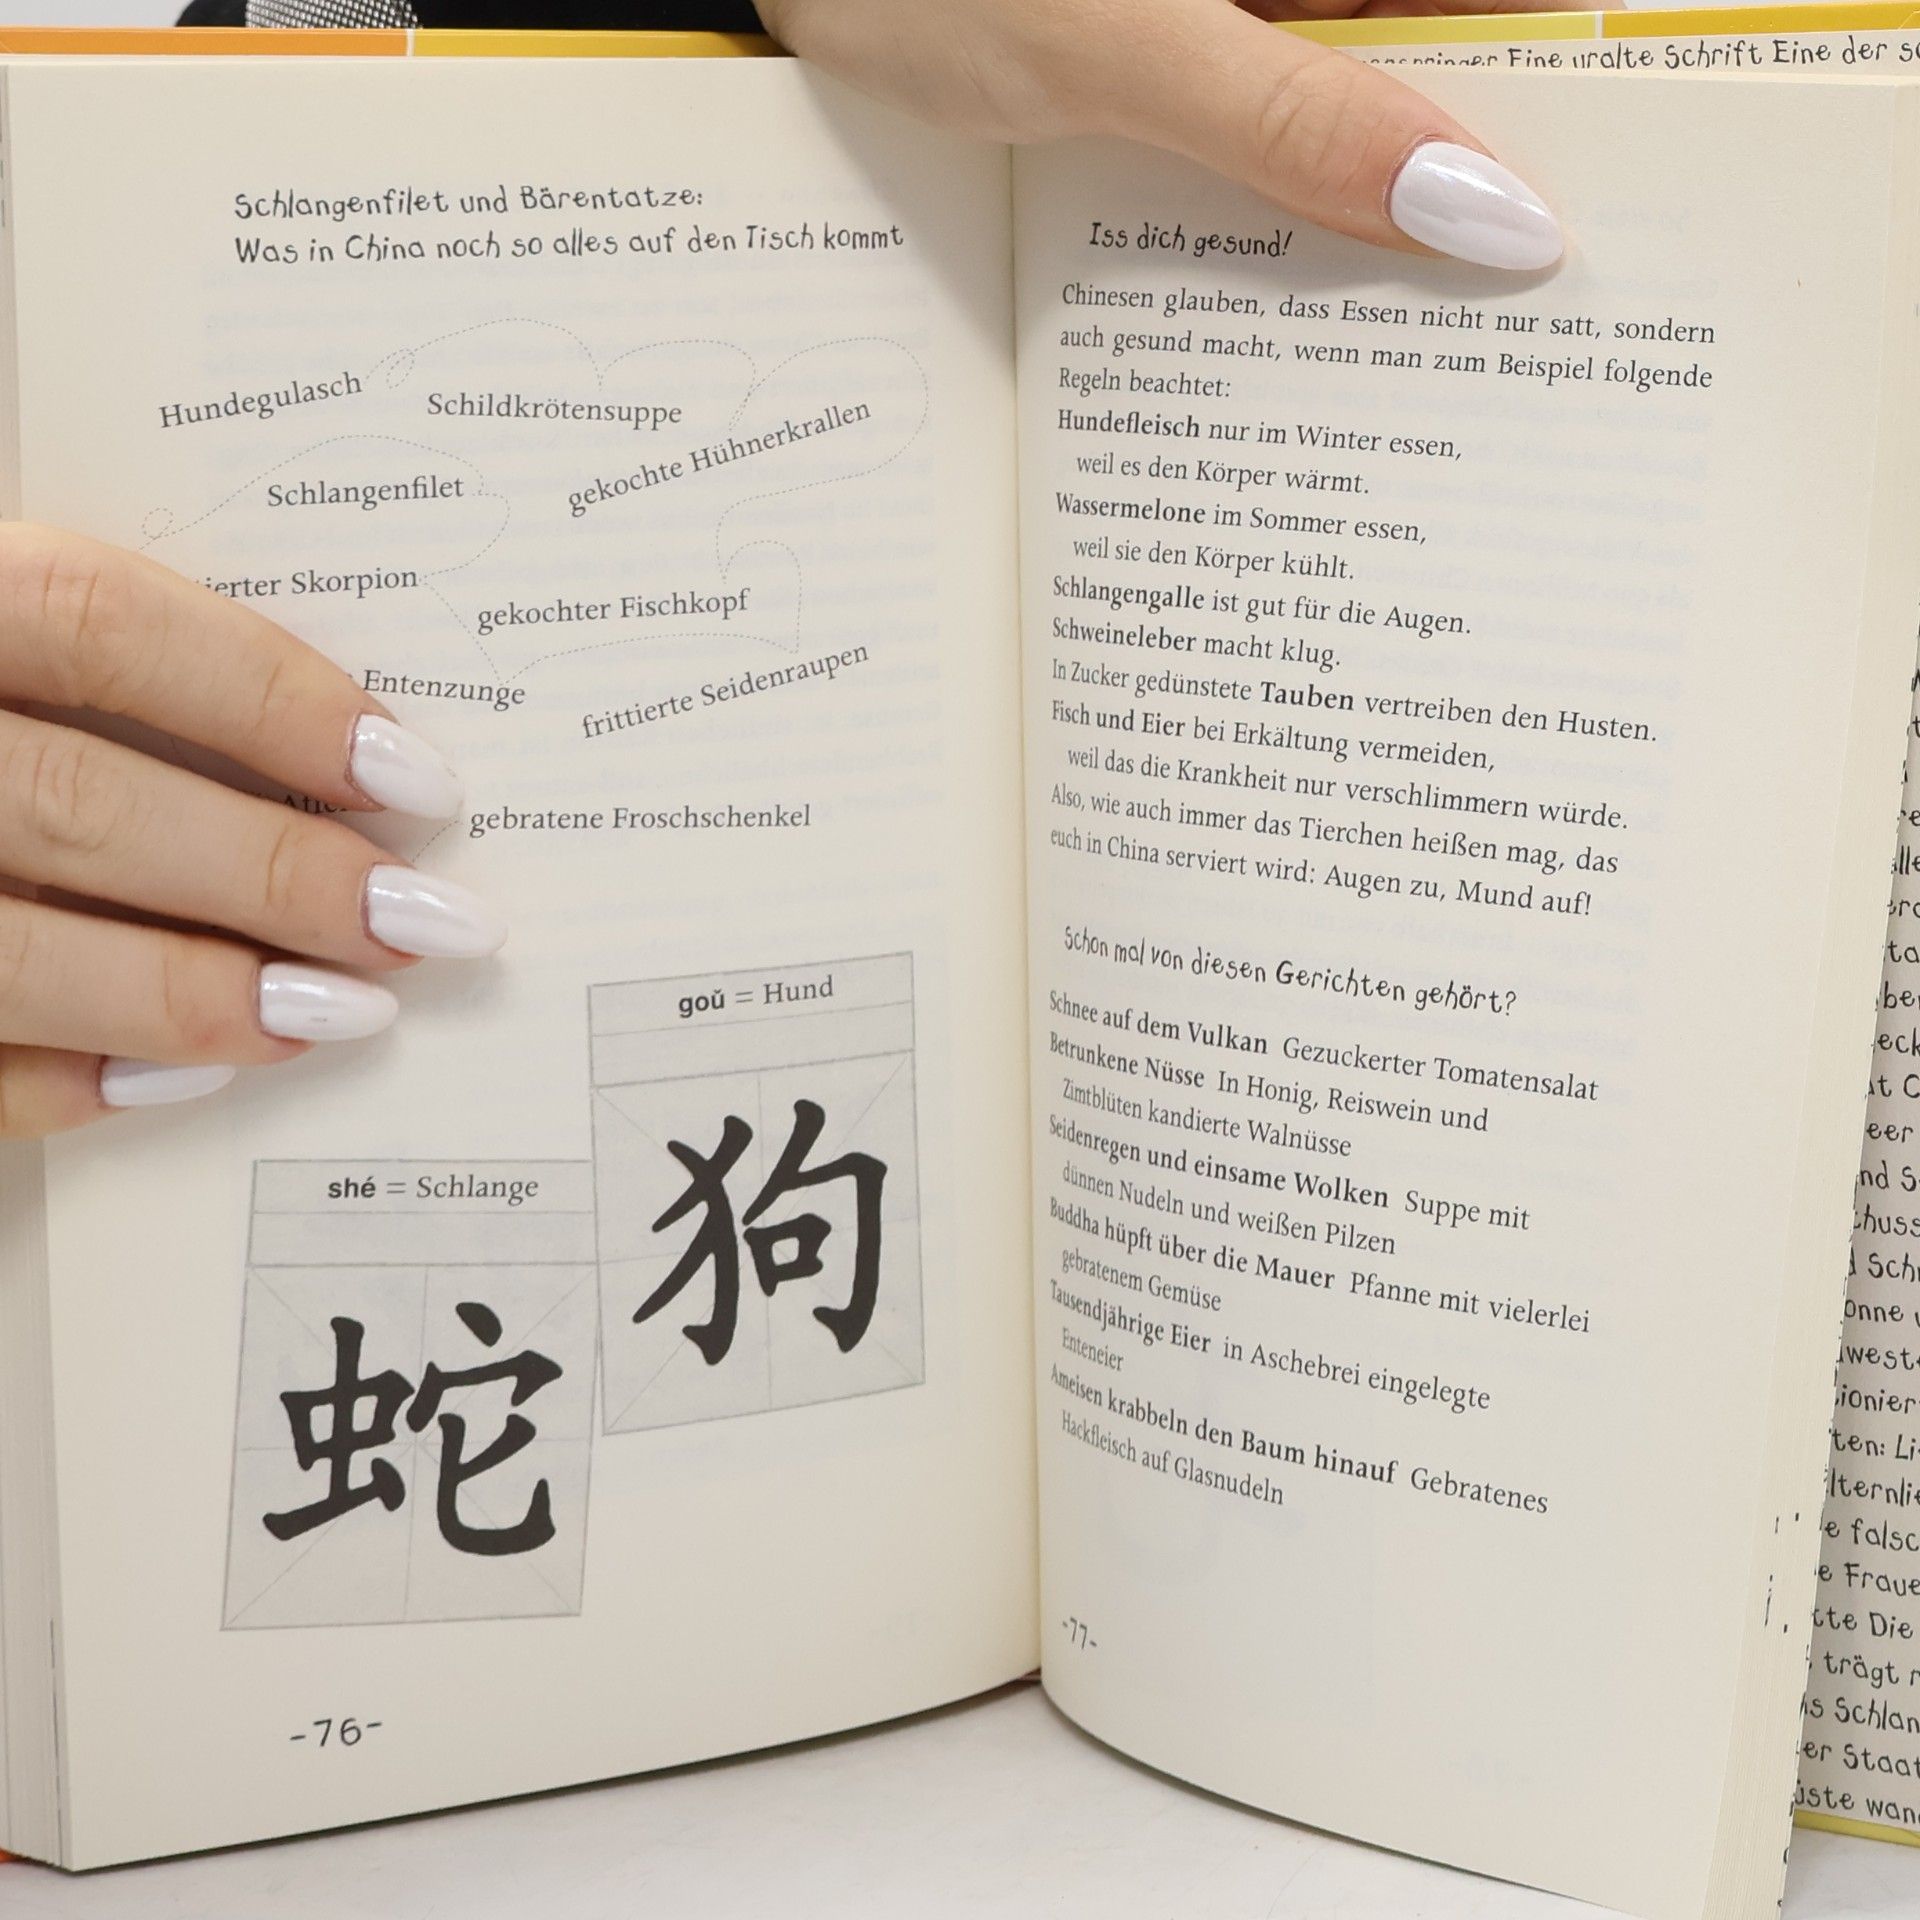 Schlangenfilet und Bärentatze:
Was in China noch so alles auf den Tisch kommt
Hundegulasch
Schildkrötensuppe
gekochte Hühnerkrallen
Schlangenfilet
Skorpion
gekochter Fischkopf
Entenzunge
frittierte Seidenraupen
gebratene Froschschenkel
goǔ = Hund
狗
shé = Schlange
蛇
-76-
Iss dich gesund!
Chinesen glauben, dass Essen nicht nur satt, sondern
auch gesund macht, wenn man zum Beispiel folgende
Regeln beachtet:
Hundefleisch nur im Winter essen,
weil es den Körper wärmt.
Wassermelone im Sommer essen,
weil sie den Körper kühlt.
Schlangengalle ist gut für die Augen.
Schweineleber macht klug.
In Zucker gedünstete Tauben vertreiben den Husten.
Fisch und Eier bei Erkältung vermeiden,
weil das die Krankheit nur verschlimmern würde.
Also, wie auch immer das Tierchen heißen mag, das
euch in China serviert wird: Augen zu, Mund auf!
Schon mal von diesen Gerichten gehört?
Schnee auf dem Vulkan Gezuckerter Tomatensalat
Betrunkene Nüsse In Honig, Reiswein und
Zimtblüten kandierte Walnüsse
Seidenregen und einsame Wolken Suppe mit
dünnen Nudeln und weißen Pilzen
Buddha hüpft über die Mauer Pfanne mit vielerlei
gebratenem Gemüse
Tausendjährige Eier in Aschebrei eingelegte
Enteneier
Ameisen krabbeln den Baum hinauf Gebratenes
Hackfleisch auf Glasnudeln
-77-
Eine uralte Schrift Eine der